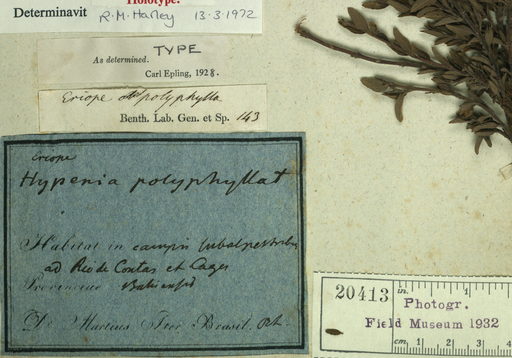 Holotype.
Determinavit R.M. Harley 13.3.1972
TYPE
As determined.
Carl Epling, 1928.
Eriope polyphylla
Benth. Lab. Gen. et Sp. 143
Eriope
Hypenia polyphylla
Habitat in campis
ad Rio de Contas et
Provinciae
Dr. Martius Iter Brasil.
20413
in. 1
Photogr.
Field Museum 1932
cm 1 2 3 4